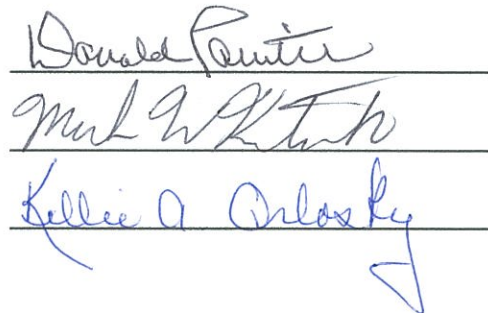 Donald Painter
Mark W
Kellie A Orlosky